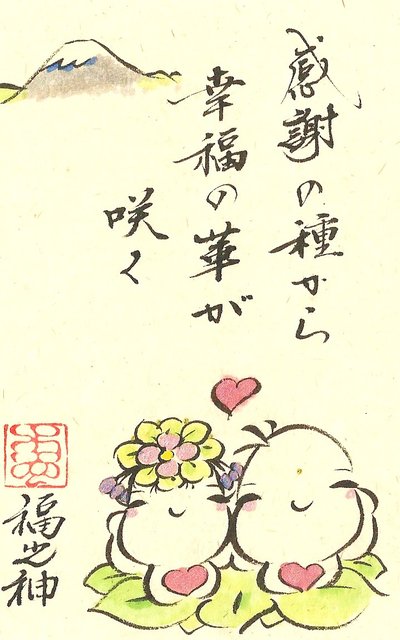 感謝の種から
幸福の華が
咲く
福之神